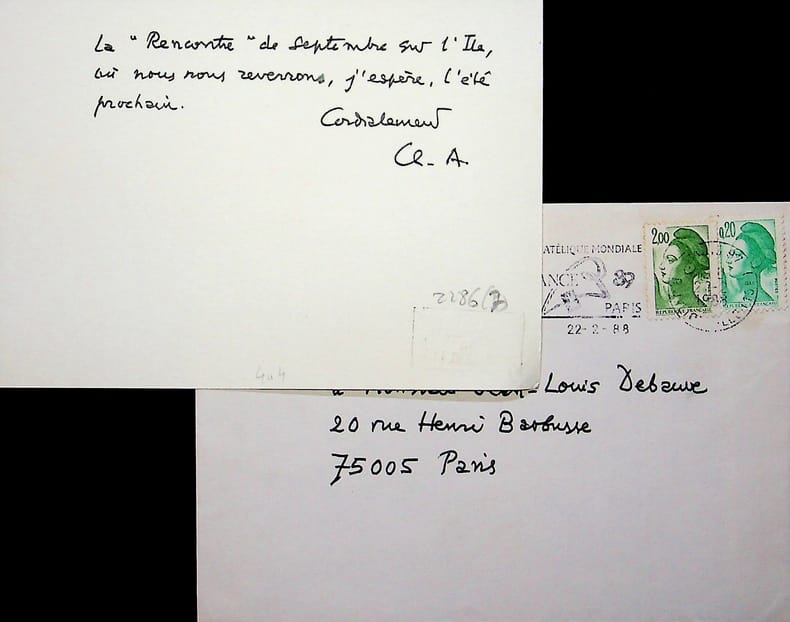 La "Rencontre" de Septembre sur l'Ile,
où nous nous reverrons, j'espère, l'été
prochain.
Cordialement
Cl- A
2286(3)
404
ATÉLIQUE MONDIALE
ANCE 89
PARIS
22-2-88
2,00
0,20
-Louis Debauve
20 rue Henri Barbusse
75005 Paris